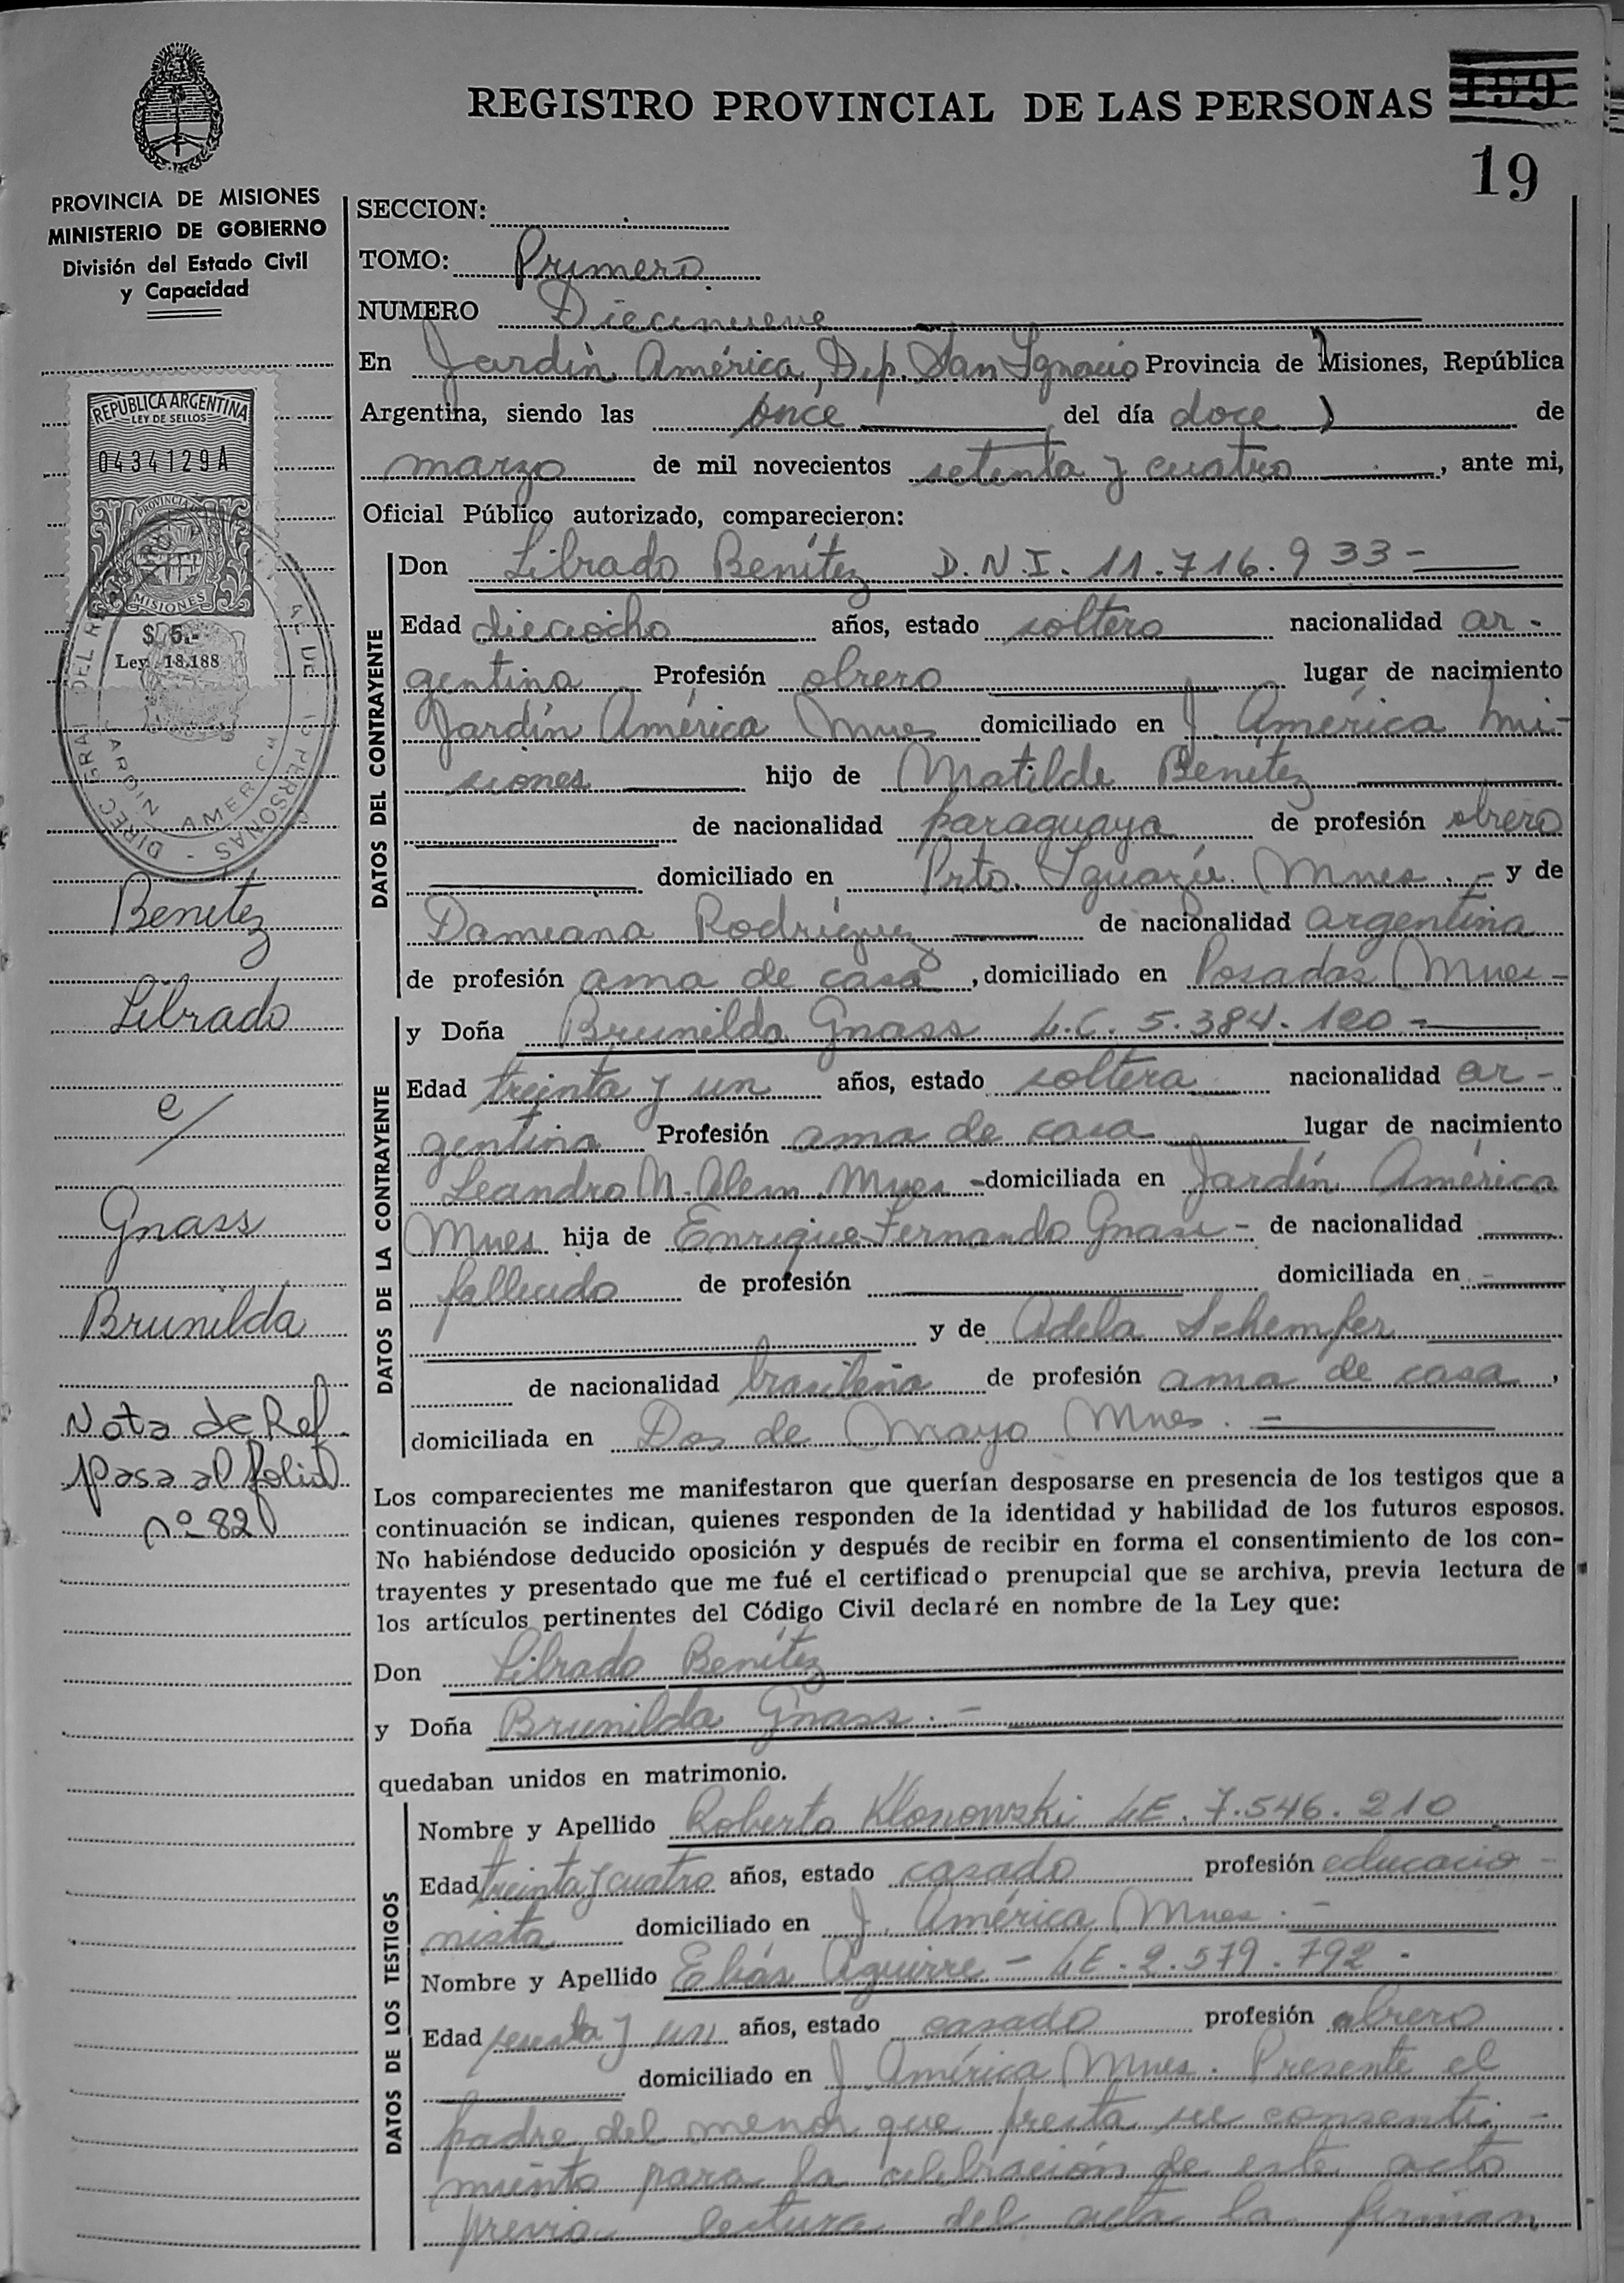 REGISTRO PROVINCIAL DE LAS PERSONAS 199
19
PROVINCIA DE MISIONES
MINISTERIO DE GOBIERNO
División del Estado Civil
y Capacidad
REPUBLICA ARGENTINA
LEY DE SELLOS
0434129A
PROVINCIA
MISIONES
$ 5.-
Ley 18.188
JARDIN AMERICA
PERSONAS
Benítez
Librado
c/
Gnass
Brunilda
Nota de Ref.
pasa al folio
nº 82
SECCION:
TOMO: Primero
NUMERO Diecinueve
En Jardín América, Dep. San Ignacio Provincia de Misiones, República
Argentina, siendo las once del día doce de
marzo de mil novecientos setenta y cuatro, ante mi,
Oficial Público autorizado, comparecieron:
DATOS DEL CONTRAYENTE
Don Librado Benítez D.N.I. 11.716.933-
Edad dieciocho años, estado soltero nacionalidad ar-
gentina Profesión obrero lugar de nacimiento
Jardín América Mnes domiciliado en J. América Mi-
siones hijo de Matilde Benítez
de nacionalidad paraguaya de profesión obrero
domiciliado en Prto. Iguazú Mnes.- y de
Damiana Rodríguez de nacionalidad argentina
de profesión ama de casa, domiciliado en Posadas Mnes-
DATOS DE LA CONTRAYENTE
y Doña Brunilda Gnass L.C. 5.384.120-
Edad treinta y un años, estado soltera nacionalidad ar-
gentina Profesión ama de casa lugar de nacimiento
Leandro N. Alem Mnes - domiciliada en Jardín América
Mnes hija de Enrique Fernando Gnass - de nacionalidad
fallecido de profesión domiciliada en -
y de Adela Schemfer
de nacionalidad brasileña de profesión ama de casa,
domiciliada en Dos de Mayo Mnes.-
Los comparecientes me manifestaron que querían desposarse en presencia de los testigos que a
continuación se indican, quienes responden de la identidad y habilidad de los futuros esposos.
No habiéndose deducido oposición y después de recibir en forma el consentimiento de los con-
trayentes y presentado que me fué el certificado prenupcial que se archiva, previa lectura de
los artículos pertinentes del Código Civil declaré en nombre de la Ley que:
Don Librado Benítez
y Doña Brunilda Gnass.-
quedaban unidos en matrimonio.
DATOS DE LOS TESTIGOS
Nombre y Apellido Roberto Klonowski LE. 7.546.210
Edad treinta y cuatro años, estado casado profesión educacio-
nista domiciliado en J. América Mnes.-
Nombre y Apellido Elías Aguirre - LE. 2.579.792-
Edad sesenta y un años, estado casado profesión obrero
domiciliado en J. América Mnes. Presente el
padre del menor que presta su consenti-
miento para la celebración de este acto
previa lectura del acta la firman